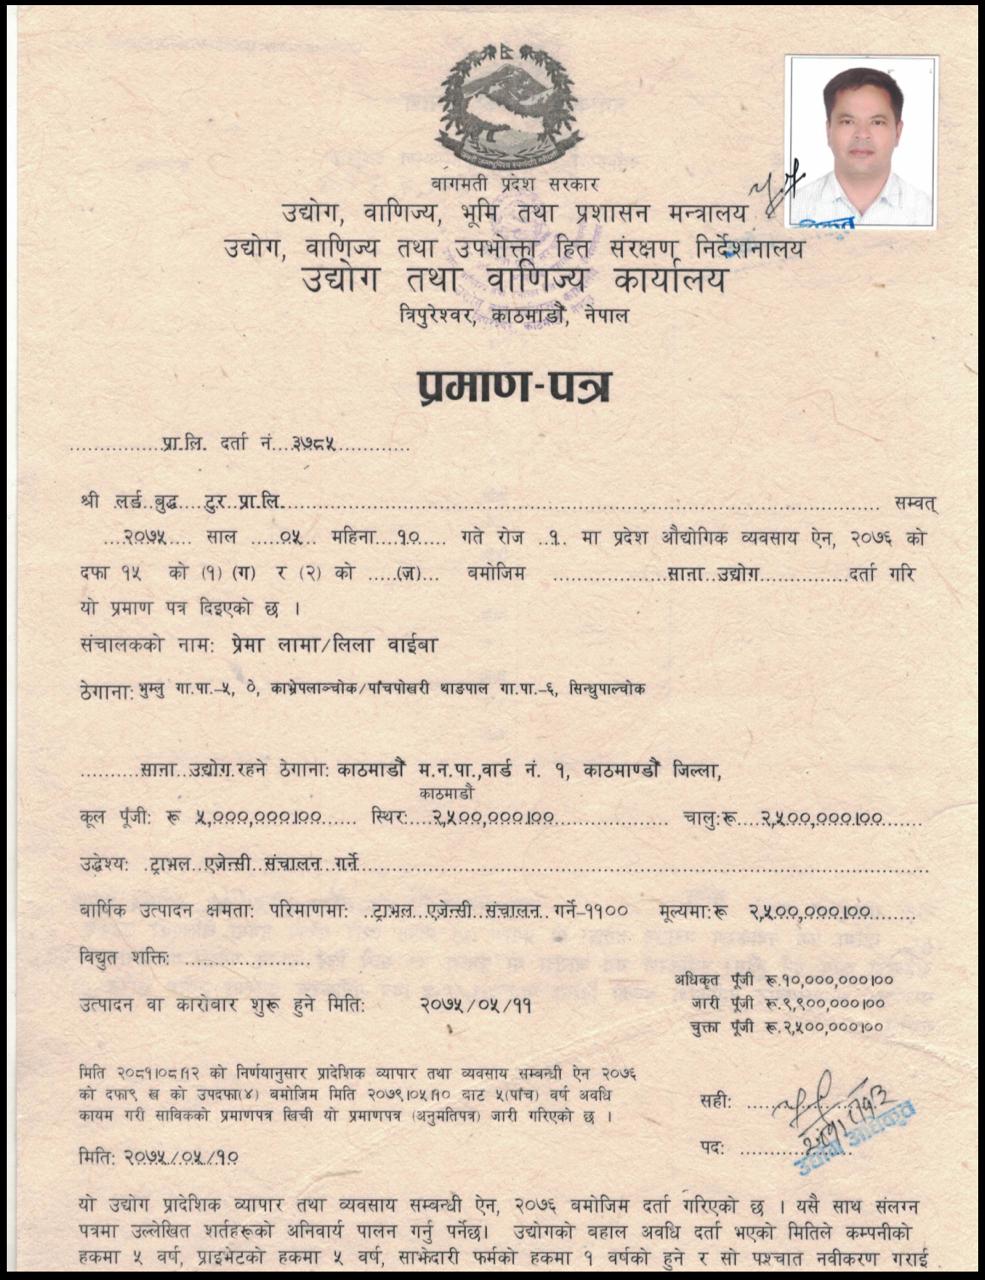 बागमती प्रदेश सरकार
उद्योग, वाणिज्य, भूमि तथा प्रशासन मन्त्रालय
उद्योग, वाणिज्य तथा उपभोक्ता हित संरक्षण निर्देशनालय
उद्योग तथा वाणिज्य कार्यालय
त्रिपुरेश्वर, काठमाडौं, नेपाल
प्रमाण-पत्र
................प्रा.लि. दर्ता नं...३७८५............
श्री लर्ड बुद्ध टुर प्रा.लि............ सम्वत्
...२०७५.... साल .....०५.. महिना...१०..... गते रोज ..१. मा प्रदेश औद्योगिक व्यवसाय ऐन, २०७६ को
दफा १५ को (१) (ग) र (२) को .....(ज)... बमोजिम ..................साना उद्योग...............दर्ता गरि
यो प्रमाण पत्र दिइएको छ ।
संचालकको नाम: प्रेमा लामा/लिला वाईबा
ठेगाना: भुम्लु गा.पा.-५, ०, काभ्रेपलाञ्चोक/पाँचपोखरी थाङपाल गा.पा.-६, सिन्धुपाल्चोक
..........साना उद्योग रहने ठेगाना: काठमाडौं म.न.पा.,वार्ड नं. १, काठमाण्डौं जिल्ला,
काठमाडौं
कूल पूँजी: रू ५,०००,०००।००...... स्थिर:...२,५००,०००।००................. चालु:रू....२,५००,०००।००......
उद्धेश्य: .ट्राभल एजेन्सी संचालन गर्ने............
बार्षिक उत्पादन क्षमता: परिमाणमा: ट्राभल एजेन्सी संचालन गर्ने-११०० मूल्यमा:रू २,५००,०००।००........
विद्युत शक्ति: .....................
अधिकृत पूँजी रू.१०,०००,०००।००
उत्पादन वा कारोबार शुरू हुने मिति: २०७५/०५/११
जारी पूँजी रू.९,९००,०००।००
चुक्ता पूँजी रू.२,५००,०००।००
मिति २०८१।०८।१२ को निर्णयानुसार प्रादेशिक व्यापार तथा व्यवसाय सम्बन्धी ऐन २०७६
को दफा९ ख को उपदफा(४) बमोजिम मिति २०७९।०५।१० बाट ५(पाँच) वर्ष अवधि
कायम गरी साविकको प्रमाणपत्र खिची यो प्रमाणपत्र (अनुमतिपत्र) जारी गरिएको छ ।
सही: ................
पद: ................
उद्योग अधिकृत
मिति: २०७५/०५/१०
यो उद्योग प्रादेशिक व्यापार तथा व्यवसाय सम्बन्धी ऐन, २०७६ बमोजिम दर्ता गरिएको छ । यसै साथ संलग्न
पत्रमा उल्लेखित शर्तहरूको अनिवार्य पालन गर्नु पर्नेछ। उद्योगको बहाल अवधि दर्ता भएको मितिले कम्पनीको
हकमा ५ वर्ष, प्राइभेटको हकमा ५ वर्ष, साझेदारी फर्मको हकमा १ वर्षको हुने र सो पश्चात नवीकरण गराई